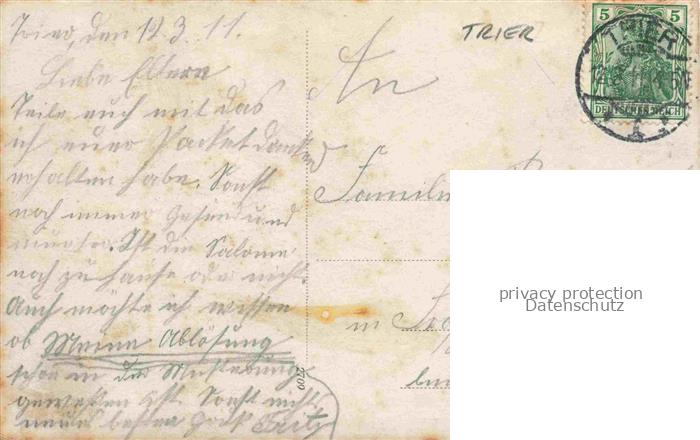 Trier, den 12.3.11.
Liebe Eltern
Teile euch mit das
ich euer Packet dankend
erhalten habe. Sonst
noch immer gesund und
munter. Ist die Salome
noch zu hause oder nicht
Auch möchte ich wissen
ob Meine Ablösung
schon in der Musterung
gewesen ist. Sonst nichts
neues besten Fritz
2709
An
Familie
in
TRIER
5 5
TRIER
DEUTSCHES REICH
privacy protection
Datenschutz